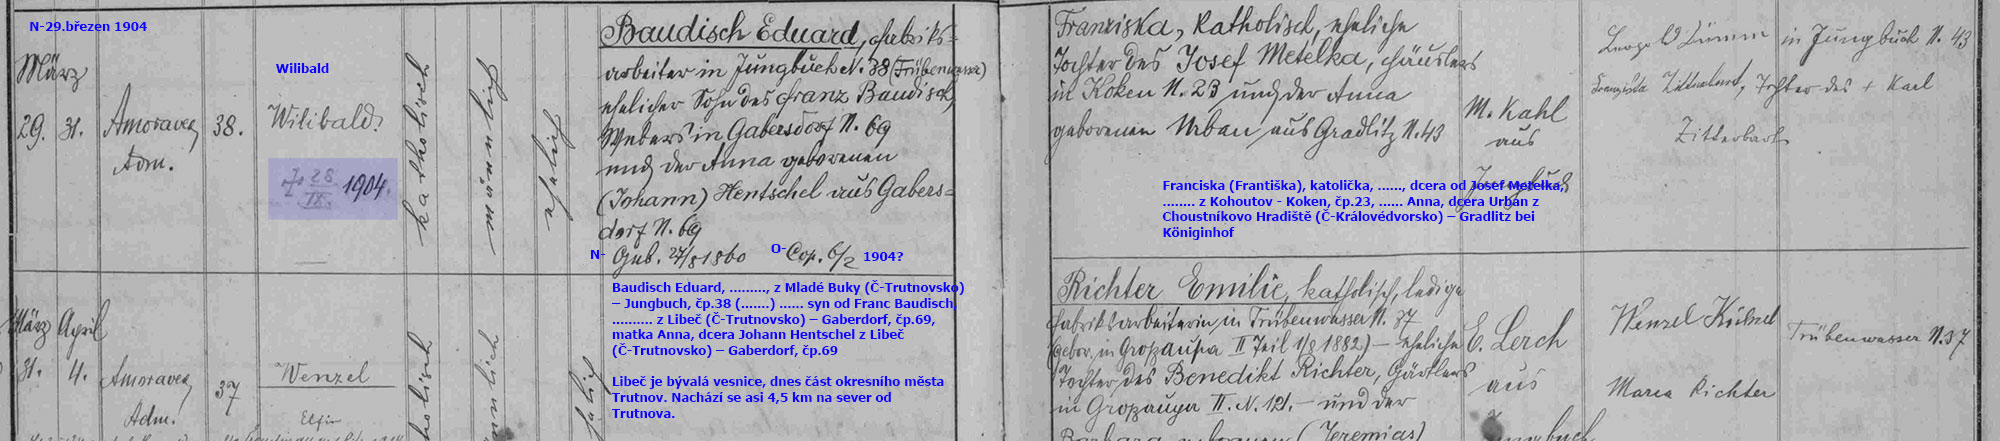 N-29.březen 1904
März
29. 31.
Amoravec
Adm.
38.
Wilibald
Wilibald.
28
IX.
1904.
katholisch
männlich
ehelich
Baudisch Eduard, Fabriks=
arbeiter in Jungbuch N. 38 (Trübenwasser)
ehelicher Sohn des Franz Baudisch,
Webers in Gabersdorf N. 69
und der Anna geborenen
(Johann) Hentschel aus Gabers=
dorf N. 69
N- Geb. 27/8 1860 O- Cop. 6/2 1904?
Baudisch Eduard, ........., z Mladé Buky (Č-Trutnovsko)
– Jungbuch, čp.38 (.......) ...... syn od Franc Baudisch,
.......... z Libeč (Č-Trutnovsko) – Gaberdorf, čp.69,
matka Anna, dcera Johann Hentschel z Libeč
(Č-Trutnovsko) – Gaberdorf, čp.69
Libeč je bývalá vesnice, dnes část okresního města
Trutnov. Nachází se asi 4,5 km na sever od
Trutnova.
Franziska, katholisch, eheliche
Tochter des Josef Metelka, Häuslers
in Koken N. 23 und der Anna
geborenen Urban aus Gradlitz N. 43
M. Kahl
aus
Jungbuch
Leopold in Jungbuch N. 43
Franziska Tochter des + Karl
Zitterbart
Franciska (Františka), katolička, ......, dcera od Josef Metelka,
........ z Kohoutov - Koken, čp.23, ...... Anna, dcera Urban z
Choustníkovo Hradiště (Č-Královédvorsko) – Gradlitz bei
Königinhof
März April
31. 4.
Amoravec
Adm.
37
Wenzel
Elfin
katholisch
männlich
ehelich
Richter Emilie, katholisch, ledige
Fabriksarbeiterin in Trübenwasser N. 37
(gebor. in Großaupa II Teil 1/8 1882) – eheliche
Tochter des Benedikt Richter, Gärtlers
in Großaupa II. N. 121. – und der
Barbara geborenen (Jeremias)
E. Lerch
aus
Jungbuch
Wenzel Kübel
Trübenwasser N. 37
Maria Richter